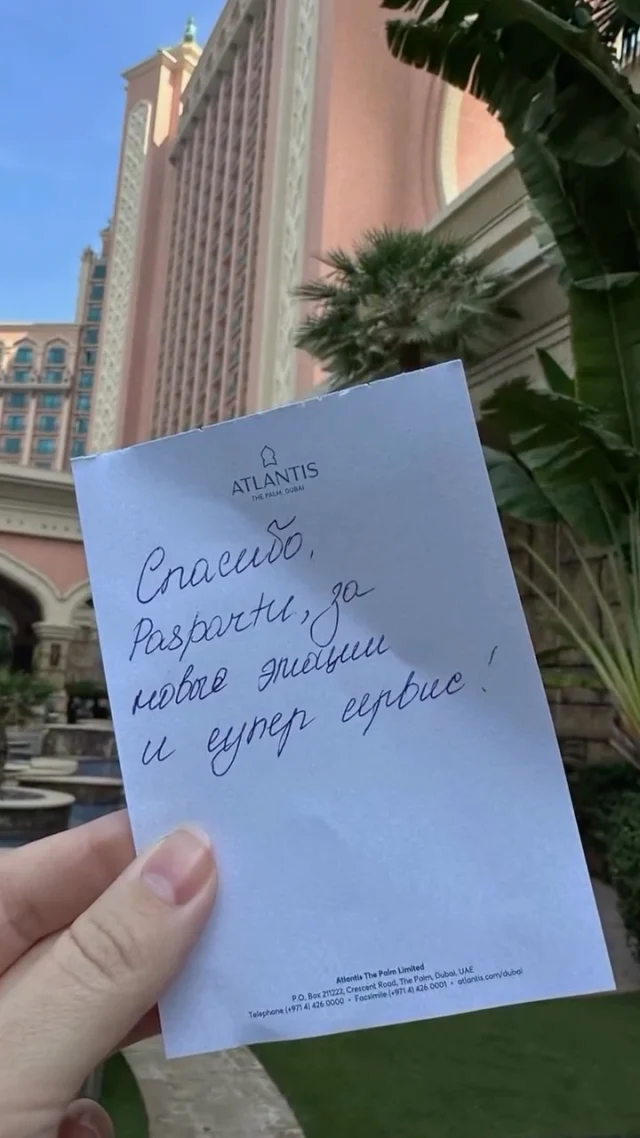 ATLANTIS
THE PALM, DUBAI
Спасибо,
Paspartu, за
новые эмоции
и супер сервис!
Atlantis The Palm Limited
P.O. Box 211222, Crescent Road, The Palm, Dubai, UAE
Telephone (+971 4) 426 0000 • Facsimile (+971 4) 426 0001 • atlantis.com/dubai